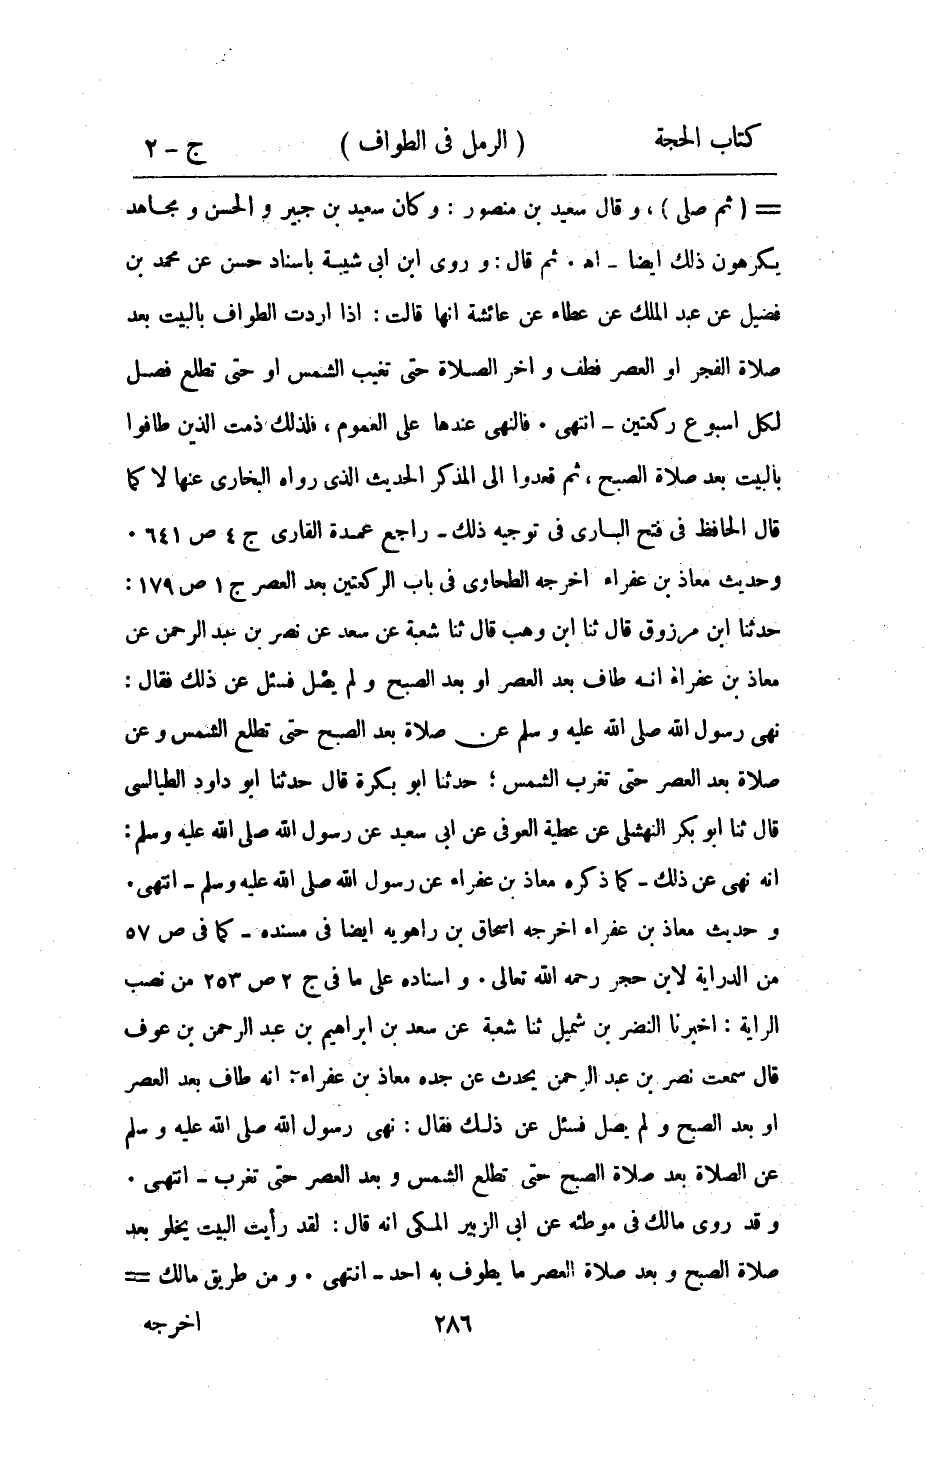 كتاب الحجة ( الرمل فى الطواف ) ج - ٢
= ( ثم صلى ) ، و قال سعيد بن منصور : و كان سعيد بن جبير و الحسن و مجاهد
يكرهون ذلك ايضا - اه . ثم قال : و روى ابن ابى شيبة باسناد حسن عن محمد بن
فضيل عن عبد الملك عن عطاء عن عائشة انها قالت : اذا اردت الطواف بالبيت بعد
صلاة الفجر او العصر فطف و اخر الصلاة حتى تغيب الشمس او حتى تطلع فصل
لكل اسبوع ركعتين - انتهى . فالنهى عندها على العموم ، فلذلك ذمت الذين طافوا
بالبيت بعد صلاة الصبح ، ثم قعدوا الى المذكر الحديث الذى رواه البخارى عنها لا كما
قال الحافظ فى فتح البارى فى توجيه ذلك - راجع عمدة القارى ج ٤ ص ٦٤١ .
وحديث معاذ بن عفراء اخرجه الطحاوى فى باب الركعتين بعد العصر ج ١ ص ١٧٩ :
حدثنا ابن مرزوق قال ثنا ابن وهب قال ثنا شعبة عن سعد عن نصر بن عبد الرحمن عن
معاذ بن عفراء انه طاف بعد العصر او بعد الصبح و لم يصل فسئل عن ذلك فقال :
نهى رسول الله صلى الله عليه و سلم عن صلاة بعد الصبح حتى تطلع الشمس و عن
صلاة بعد العصر حتى تغرب الشمس ؛ حدثنا ابو بكرة قال حدثنا ابو داود الطيالسى
قال ثنا ابو بكر النهشلى عن عطية العوفى عن ابى سعيد عن رسول الله صلى الله عليه وسلم :
انه نهى عن ذلك - كما ذكره معاذ بن عفراء عن رسول الله صلى الله عليه وسلم - انتهى .
و حديث معاذ بن عفراء اخرجه اسحاق بن راهويه ايضا فى مسنده - كما فى ص ٥٧
من الدراية لابن حجر رحمه الله تعالى . و اسناده على ما فى ج ٢ ص ٢٥٣ من نصب
الراية : اخبرنا النضر بن شميل ثنا شعبة عن سعد بن ابراهيم بن عبد الرحمن بن عوف
قال سمعت نصر بن عبد الرحمن يحدث عن جده معاذ بن عفراء : انه طاف بعد العصر
او بعد الصبح و لم يصل فسئل عن ذلك فقال : نهى رسول الله صلى الله عليه و سلم
عن الصلاة بعد صلاة الصبح حتى تطلع الشمس و بعد العصر حتى تغرب - انتهى .
و قد روى مالك فى موطئه عن ابى الزبير المكى انه قال : لقد رأيت البيت يخلو بعد
صلاة الصبح و بعد صلاة العصر ما يطوف به احد - انتهى . و من طريق مالك =
٢٨٦ اخرجه